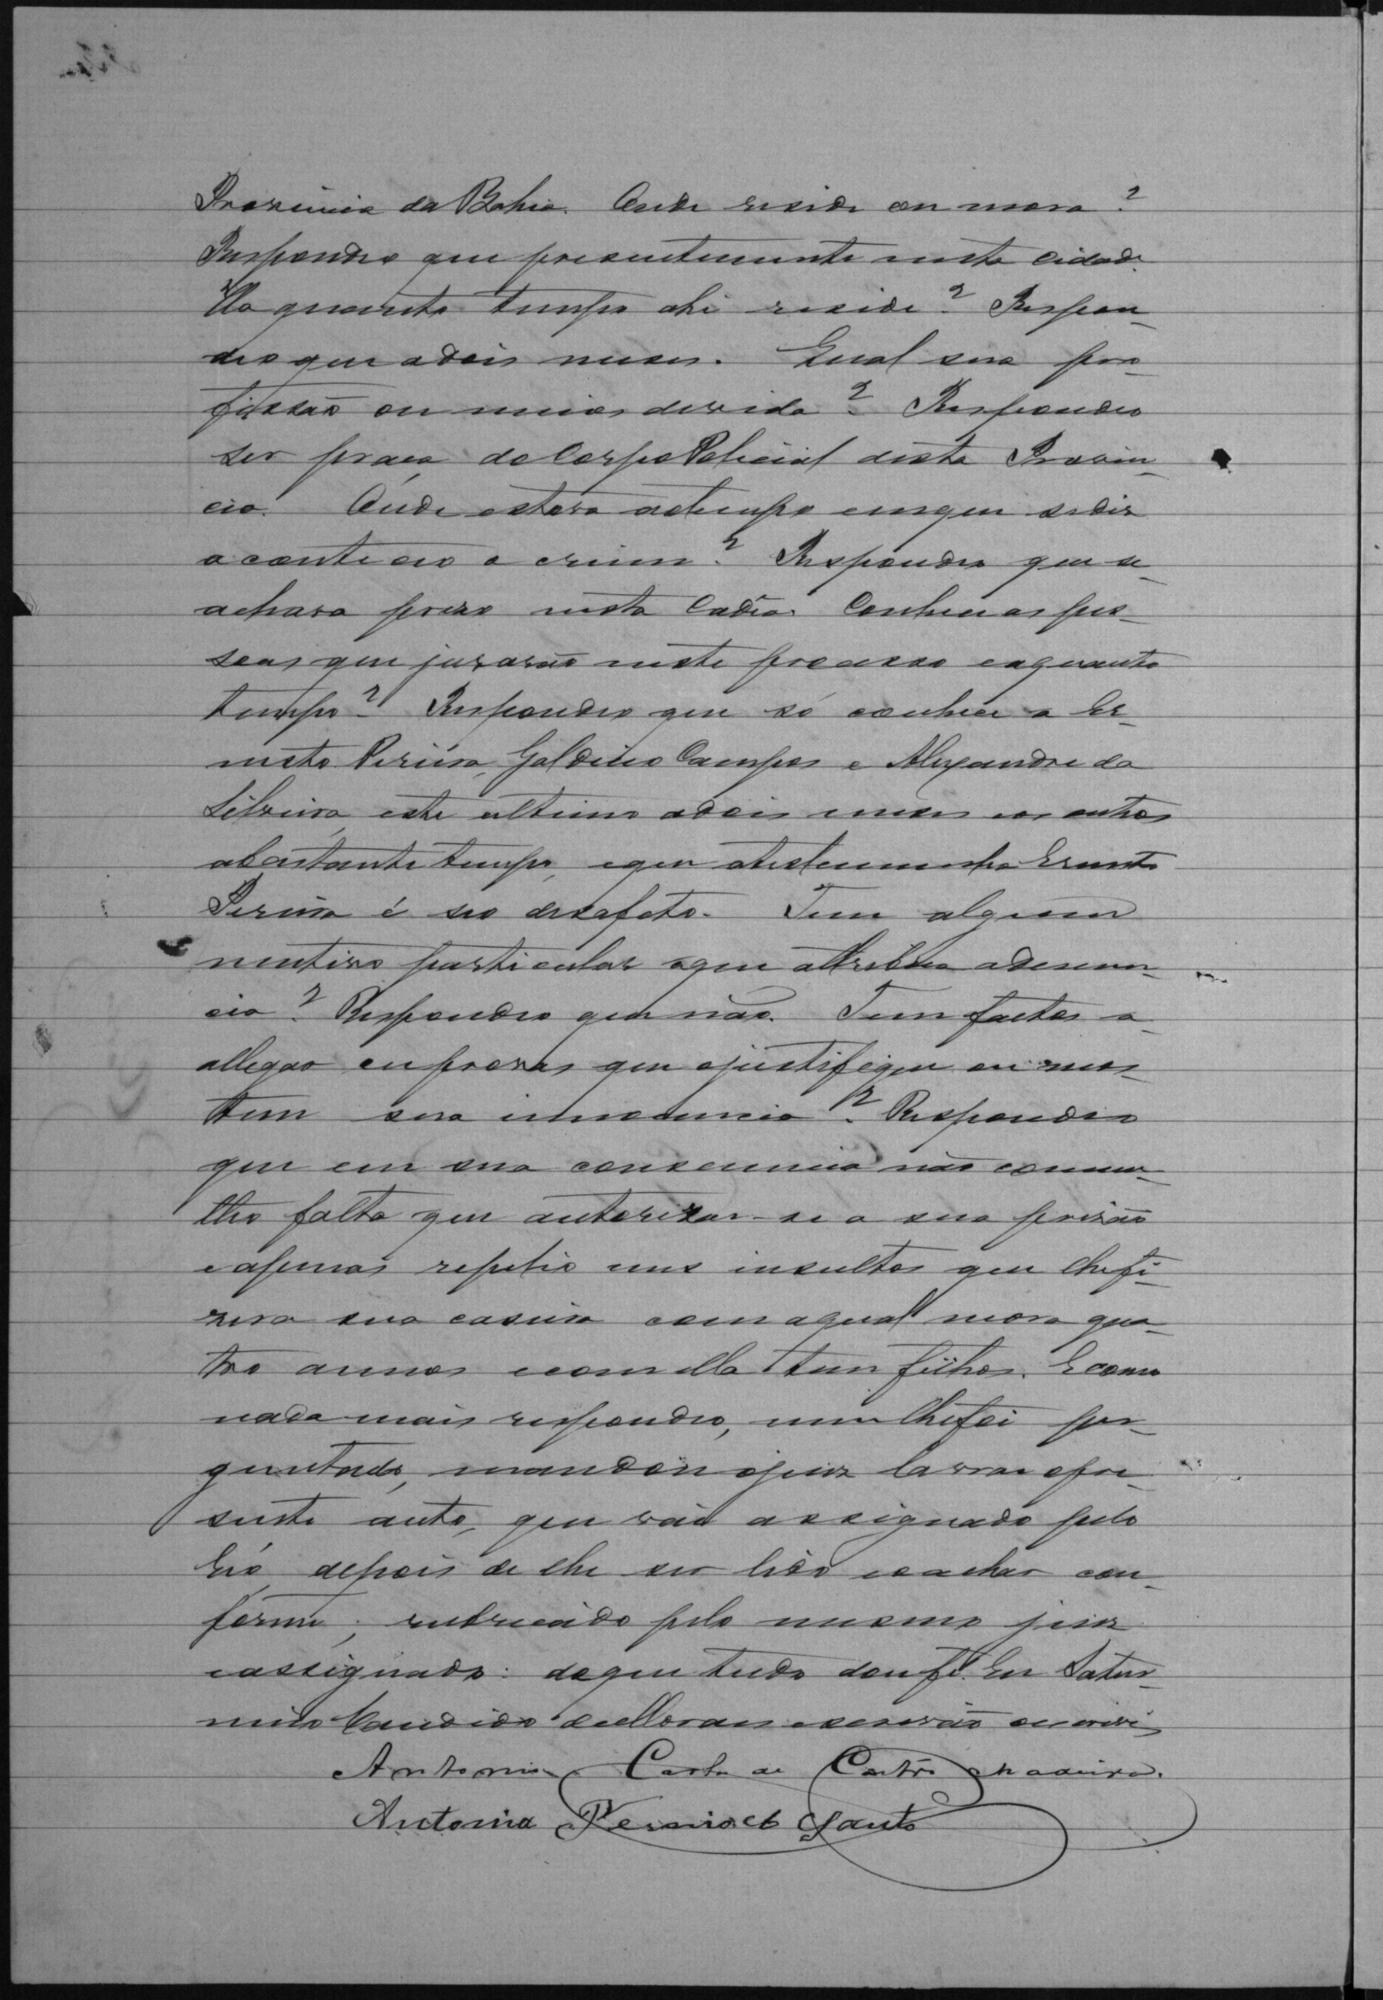 Provincia da Bahia. Onde reside ou mora?
Respondeo que presentemente nesta cidade.
Ha quanto tempo ahi reside? Respon-
deo que a dois meses. Qual sua pro-
fissão ou meios de vida? Respondeo
ser praça do Corpo Policial desta Provin-
cia. Onde estava ao tempo em que se diz
aconteceo o crime? Respondeo que se
achava prezo nesta Cadêa. Conhece as pes-
soas que jurarão neste processo e a quanto
tempo? Respondeo que só conhece a Er-
nesto Pereira, Galdino Campos e Alexandre da
Silveira, este ultimo a dois meses e os outros
a bastante tempo, e que a testemunha Ernesto
Pereira é seo desafeto. Tem algum
motivo particular a que attribua a denun-
cia? Respondeo que não. Tem factos a
allegar ou provas que o justifique ou mos-
trem sua innocencia? Respondeo
que em sua consciencia não comme-
tteo falta que autorizar-se a sua prizão
e apenas repetio uns insultos que lhe fi-
zera sua caseira com a qual mora qua-
tro annos e com ella tem filhos. E como
nada mais respondeo, nem lhe foi per-
guntado, mandou o juiz lavrar o pre-
sente auto, que vai assignado pelo
Réo, depois de lhe ser lido e o achar con-
forme, rubricado pelo mesmo juiz
e assignado: do que tudo dou fé. Eu Satur-
nino Candido de Moraes escrivão escrevi
Antonio Costa de Castro Madeira.
Antonio Pereira do Santo